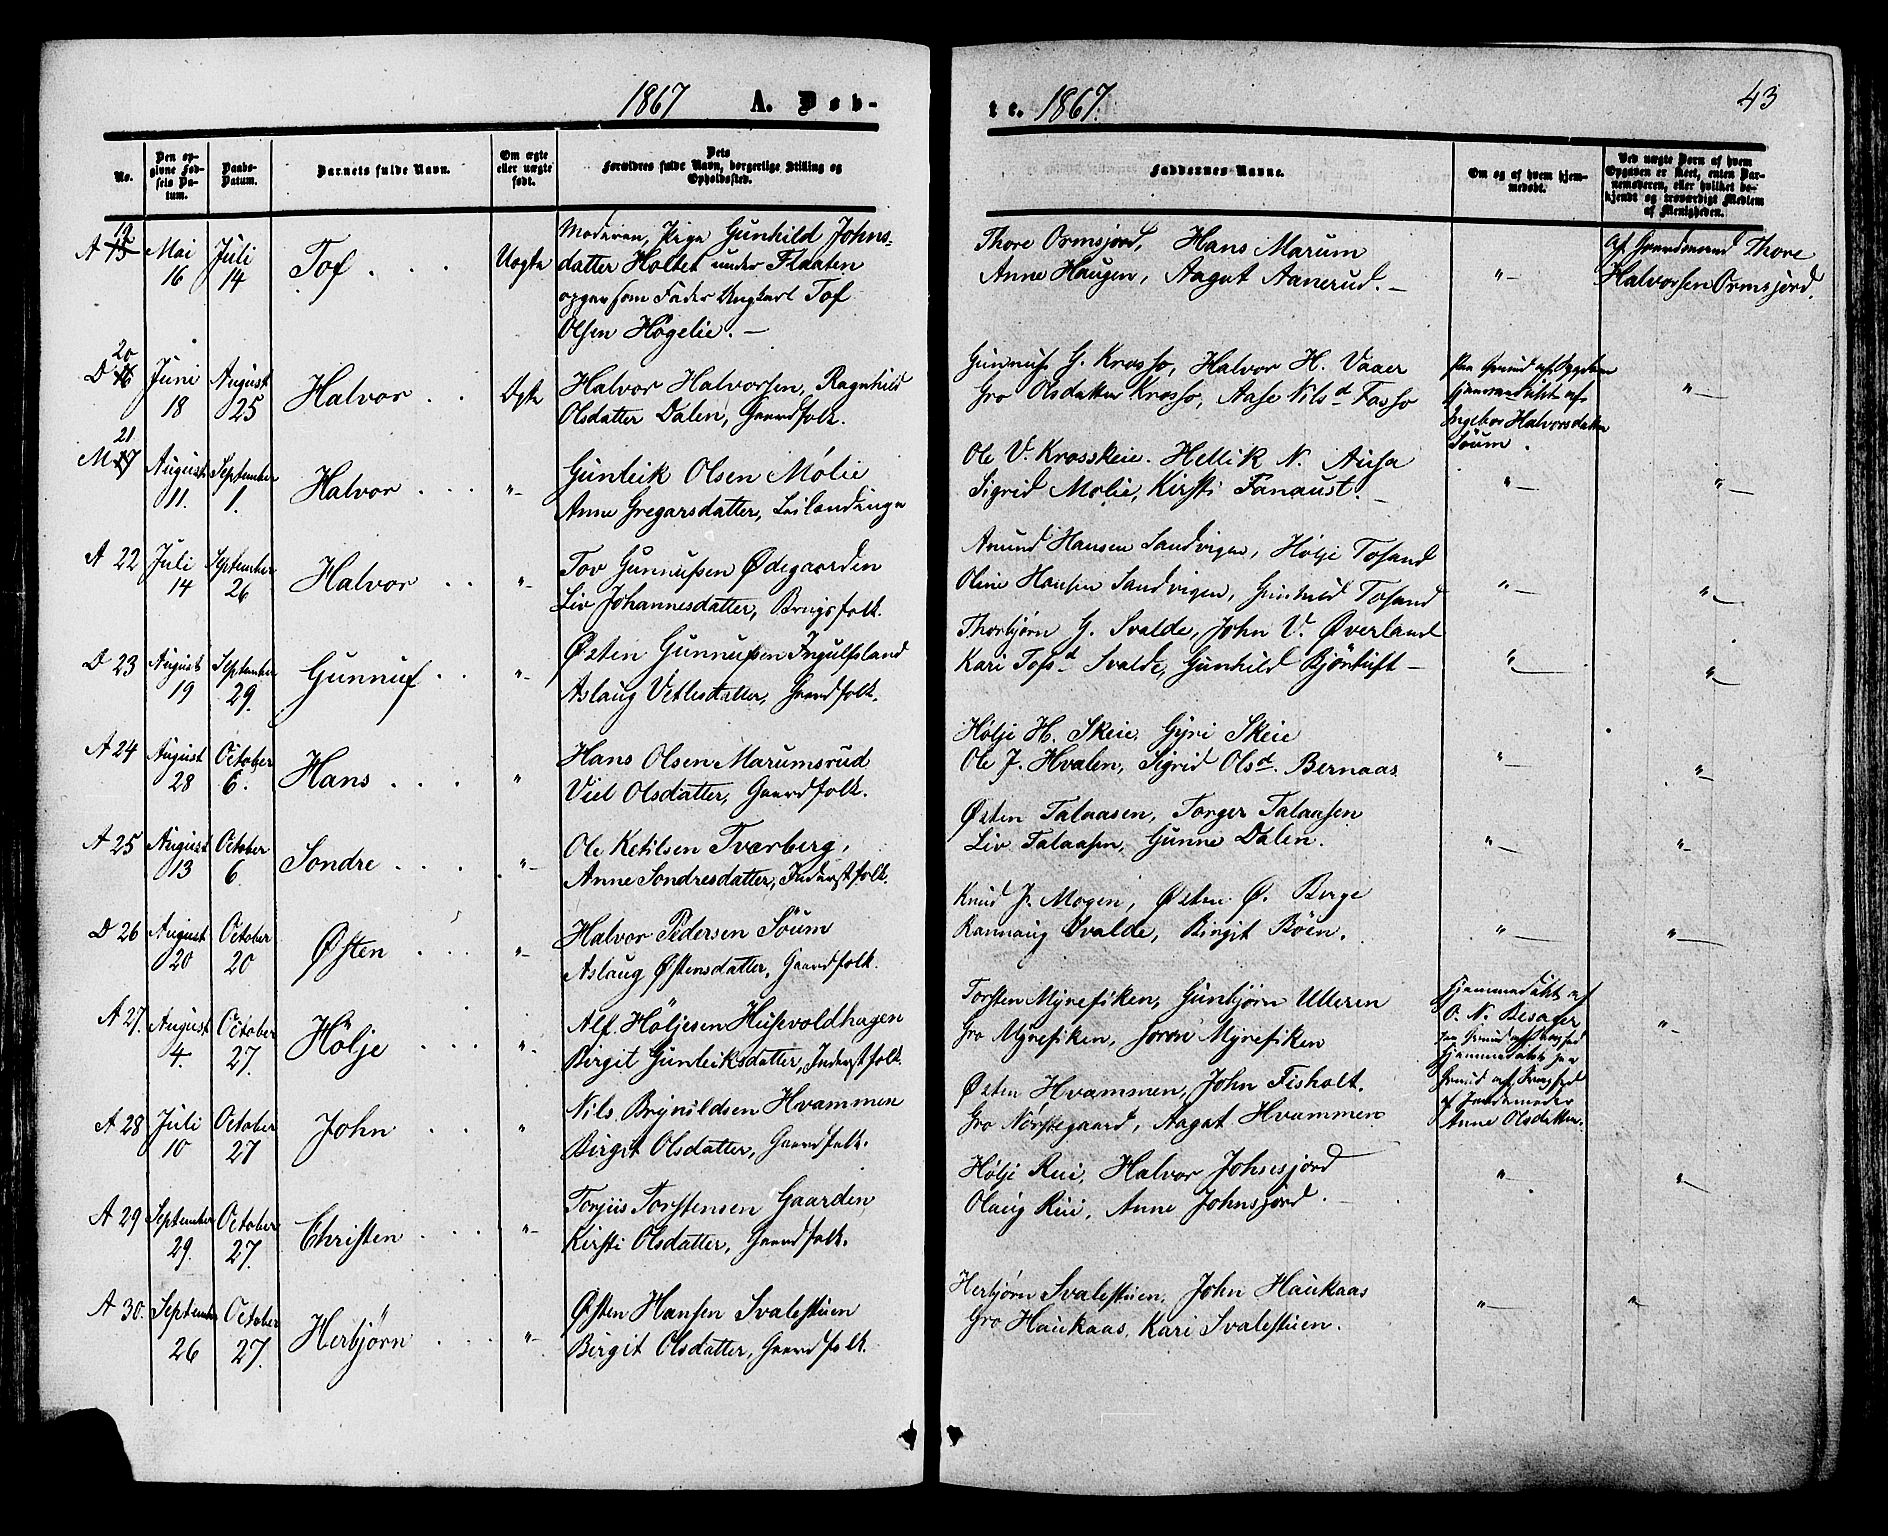 1867 A. Døb-
No.
Den op-
givne Fød-
sels Da-
tum.
Daabs-
Datum.
Barnets fulde Navn.
Om ægte
eller uægte
født.
Dets
Forældres fulde Navn, borgerlige Stilling og
Opholdssted.
A 19 15
Mai
16
Juli
14
Tof
Uægte
Moderen, Pige Gunhild Johns-
datter Holtet under Flaaten
opgav som Fader Ungkarl Tof
Olsen Høgelie. —
D 20 16
Juni
18
August
25
Halvor
Ægte
Halvor Halvorsen, Ragnhild
Olsdatter Dalen, Gaardfolk.
M 21 17
August
11.
September
1.
Halvor
"
Gunleik Olsen Mølie
Anne Gregarsdatter, Leilændinge
A 22
Juli
14
September
26
Halvor
"
Tov Gunnufsen Ødegaarden
Liv Johannesdatter, Brugsfolk.
D 23
August
19
September
29.
Gunnuf
"
Østen Gunnufsen Ingulfsland
Aslaug Vetlesdatter, Gaardfolk.
A 24
August
28
October
6.
Hans
"
Hans Olsen Marumsrud
Viel Olsdatter, Gaardfolk.
A 25
August
13
October
6.
Sondre
"
Ole Ketilsen Tværberg,
Anne Sondresdatter, Inderstfolk.
D 26
August
20
October
20
Østen
"
Halvor Pedersen Søum
Aslaug Østensdatter, Gaardfolk.
A 27.
August
4.
October
27.
Hölje
"
Alf Höljesen Husevoldhagen
Birgit Gunleiksdatter, Inderstfolk.
A 28
Juli
10
October
27
John
"
Nils Brynildsen Hvammen
Birgit Olsdatter, Gaardfolk.
A 29
September
29.
October
27.
Christen
"
Torjus Torstensen Gaarden
Kirsti Olsdatter, Gaardfolk.
A 30.
September
26
October
27.
Herbjørn
"
Østen Hansen Svalestuen
Birgit Olsdatter, Gaardfolk.
te. 1867.
43
Faddernes Navne.
Om og af hvem hjem-
medøbt.
Ved uægte Børn af hvem
Opgaven er skeet, enten Bar-
nemoderen, eller hvilket be-
kjendt og troværdigt Medlem
af Menigheden.
Thore Ormsjord, Hans Marum
Anne Haugen, Aagat Aanerud. —
"
af Gaardmand Thore
Halvorsen Ormsjord.
Gunnuf G. Krosso, Halvor H. Vaaer
Gro Olsdatter Krosso, Aase Nilsd Fosso
paa Grund af Sygdom
hjemmedøbt af
Ingebor Halvorsdatter
Søum.
"
Ole V. Krosskeie. Hellik N. Ausa
Sigrid Mølie, Kirsti Fanaust. —
"
"
Amund Hansen Sandvigen, Hölje Tosand
Oline Hansen Sandvigen, Gunhild Tosand
"
"
Thorbjørn G. Svalde, John V. Øverland
Kari Tofsd Svalde, Gunhild Bjørtuft —
"
"
Hölje H. Skeie, Gyri Skeie
Ole J. Hvalen, Sigrid Olsd. Bernaas
"
"
Østen Talaasen, Torger Talaasen
Liv Talaasen, Gunne Dalen.
"
"
Knud J. Mogen, Østen Ø. Berge
Rannaug Svalde, Birgit Böen.
"
"
Torsten Myrefiken, Gunbjørn Ulleren
Gro Myrefiken, Joron Myrefiken
Hjemmedøbt af
O. N. Besafer
paa Grund af Svaghed
"
Østen Hvammen, John Fisholt.
Gro Nørstegaard, Aagat Hvammen
Hjemmedøbt paa
Grund af Svaghed
af Jordemoder
Anne Olsdatter.
Hölje Rui, Halvor Johnsjord
Olaug Rui, Anne Johnsjord. —
"
"
Herbjørn Svalestuen, John Haukaas
Gro Haukaas, Kari Svalestuen.
"
"